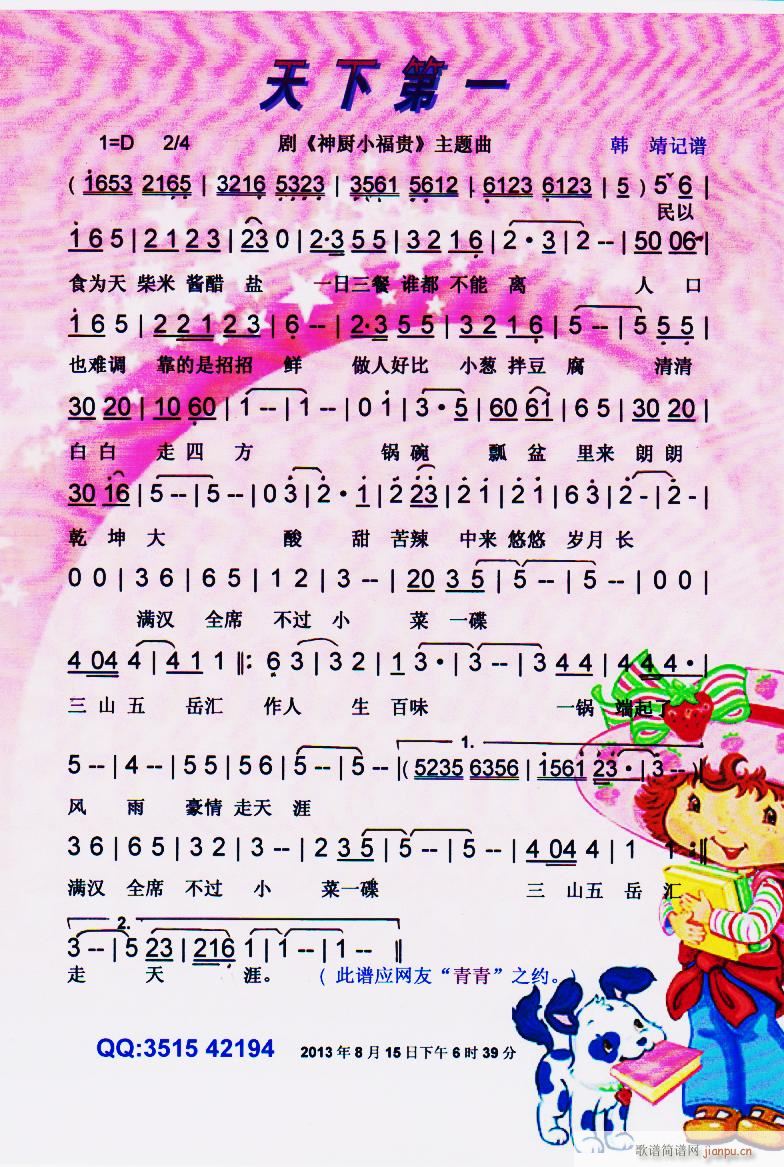 天下第一
1=D 2/4 剧《神厨小福贵》主题曲 韩 靖记谱
( 1653 2165 | 3216 5323 | 3561 5612 | 6123 6123 | 5 ) 5 6 |
民以
1 6 5 | 2 1 2 3 | 23 0 | 2·3 5 5 | 3 2 1 6 | 2 · 3 | 2 -- | 50 06 |
食为天 柴米 酱醋 盐 一日三餐 谁都 不能 离 人 口
1 6 5 | 2 2 1 2 3 | 6 -- | 2·3 5 5 | 3 2 1 6 | 5 -- | 5 5 5 |
也难调 靠的是招招 鲜 做人好比 小葱 拌豆 腐 清清
30 20 | 10 60 | 1 -- | 1 -- | 0 1 | 3 · 5 | 60 61 | 6 5 | 30 20 |
白白 走四 方 锅碗 瓢 盆 里来 朗朗
30 16 | 5 -- | 5 -- | 0 3 | 2 · 1 | 2 23 | 2 1 | 2 1 | 6 3 | 2 - | 2 - |
乾 坤 大 酸 甜 苦辣 中来 悠悠 岁月 长
0 0 | 3 6 | 6 5 | 1 2 | 3 -- | 20 3 5 | 5 -- | 5 -- | 0 0 |
满汉 全席 不过 小 菜 一碟
4 04 4 | 4 1 1 ‖: 6 3 | 3 2 | 1 3 · | 3 -- | 3 4 4 | 4 4 4 · |
三 山 五 岳汇 作人 生 百味 一锅 端起了
1.
5 -- | 4 -- | 5 5 | 5 6 | 5 -- | 5 -- | ( 5235 6356 | 1561 23 · | 3 -- )
风 雨 豪情 走天 涯
3 6 | 6 5 | 3 2 | 3 -- | 2 3 5 | 5 -- | 5 -- | 4 04 4 | 1 1 :‖
满汉 全席 不过 小 菜一碟 三 山五 岳 汇
2.
3 -- | 5 23 | 216 1 | 1 -- | 1 -- ‖
走 天 涯。 ( 此谱应网友“青青”之约。 )
QQ:3515 42194 2013 年 8 月 15 日下午 6 时 39 分
歌谱简谱网 jianpu.cn